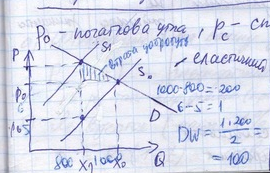 P₀ - початкова ціна, Pc - сп
P
S₁
втрата добробуту
S₀
еластичний
1000-800 = 200
6-5 = 1
P₀
6
D
DW = 1·200 / 2 =
= 100
5
800 X₁ 1000 X₀ Q